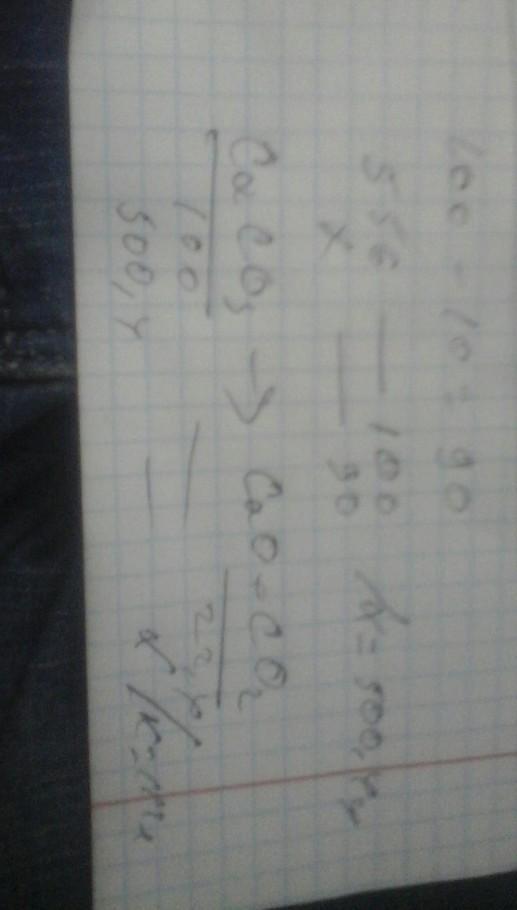 100 - 10 = 90
556 — 100
x — 90 x = 500,4 г
CaCO3 → CaO + CO2
100 — 22,4
500,4 — x